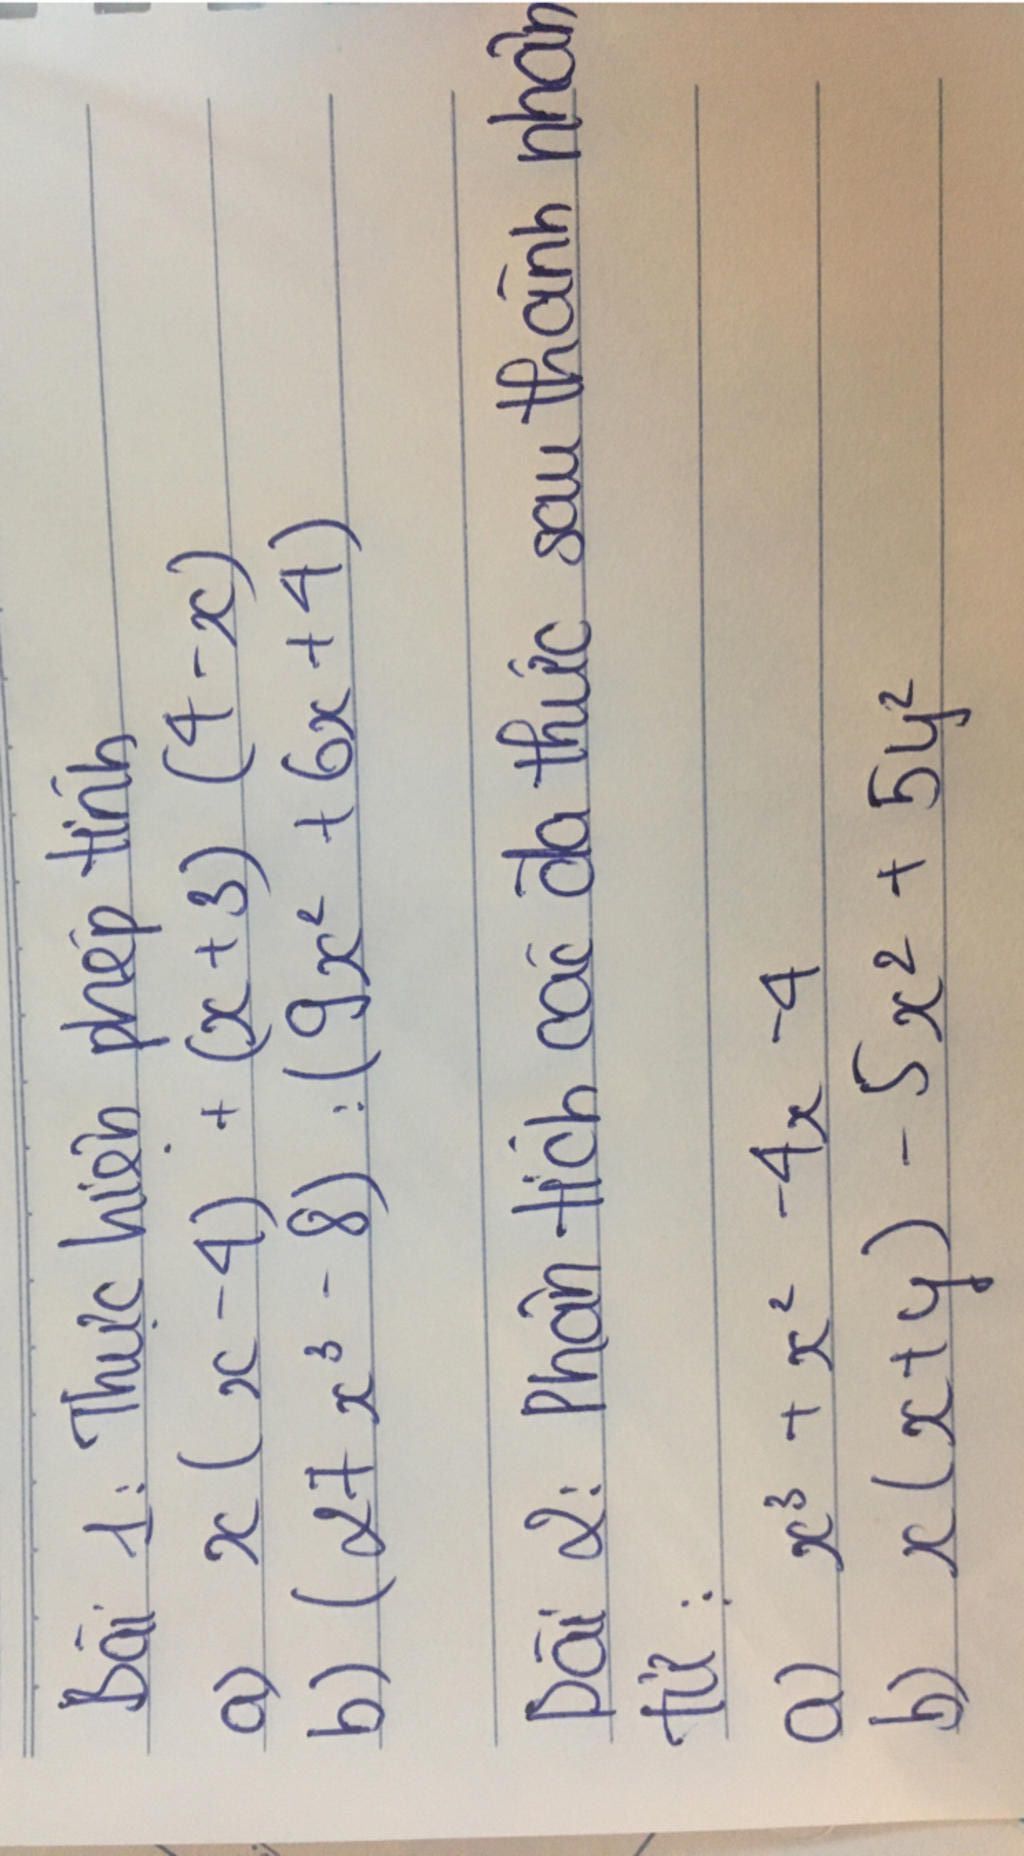 Bài 1: Thực hiện phép tính
a) x(x-4) + (x+3) (4-x)
b) (27x³ - 8) : (9x² + 6x + 4)
Bài 2: Phân tích các đa thức sau thành nhân
tử:
a) x³ + x² - 4x - 4
b) x(x+y) - 5x² + 5y²